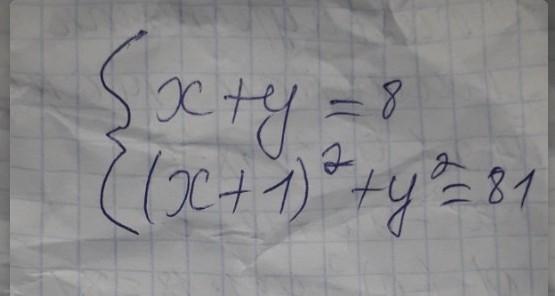 x+y=8
(x+1)²+y²=81